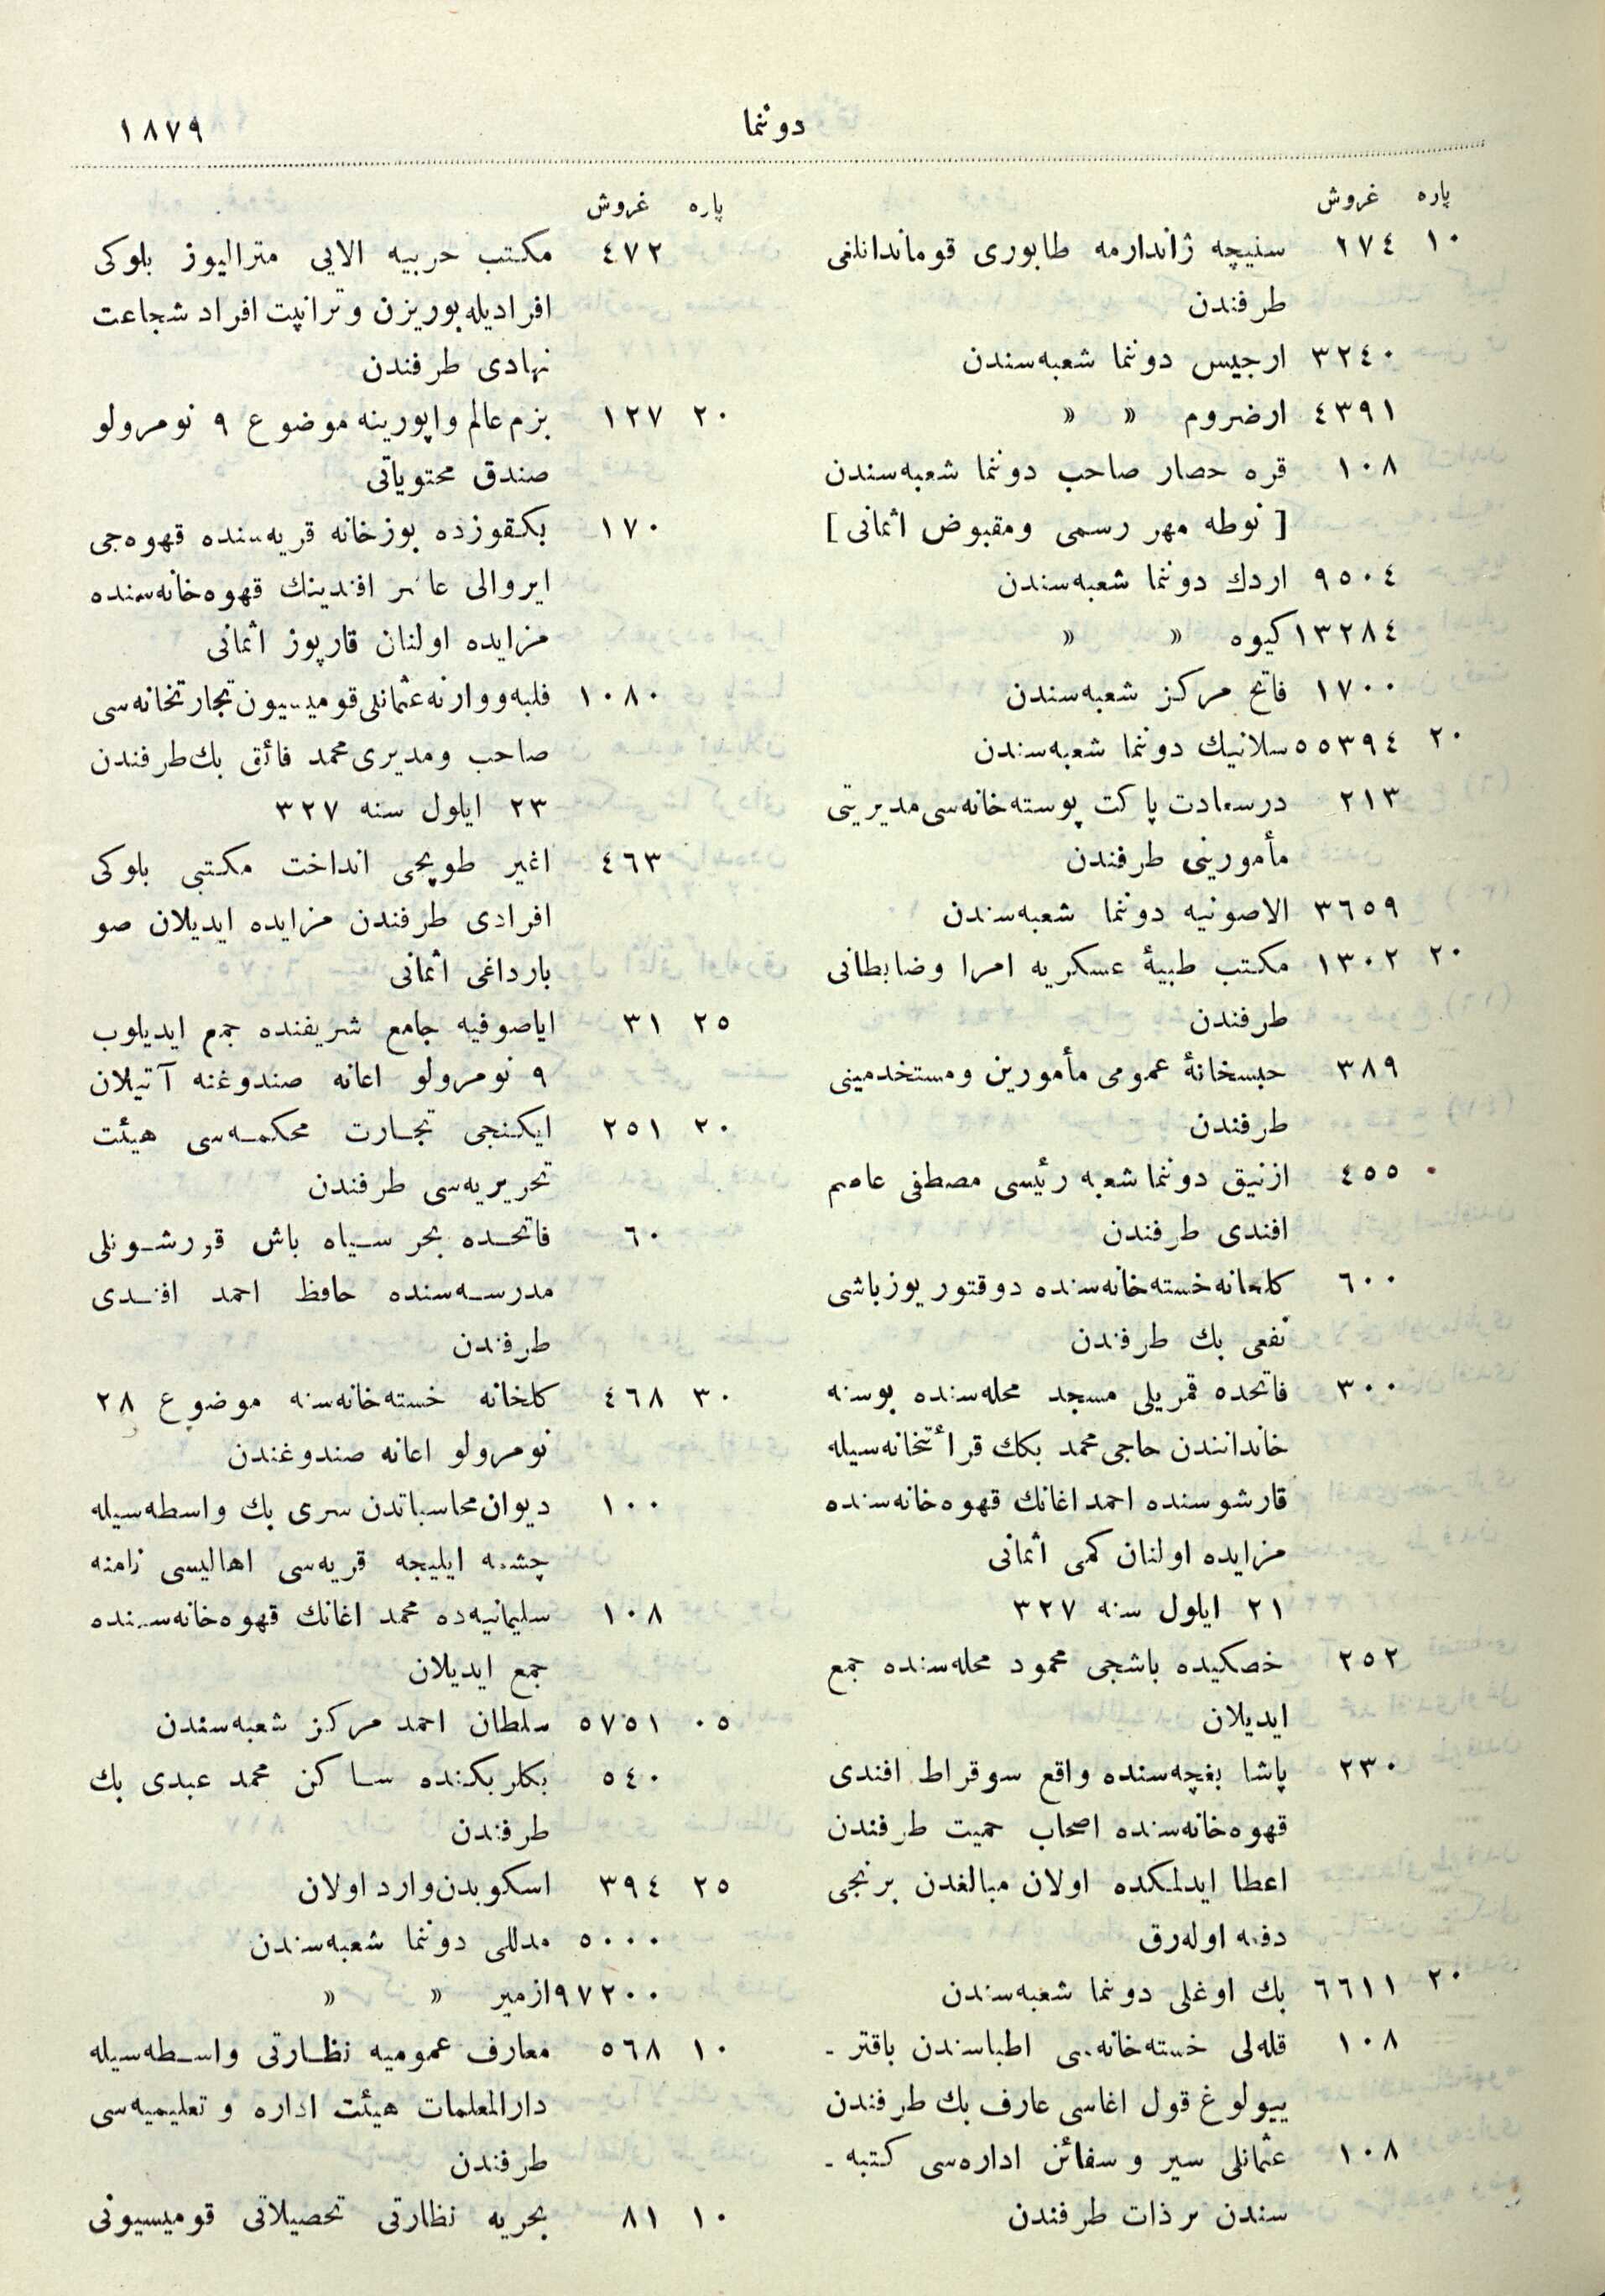 ١٨٧٩
دوننما
پاره غروش
١٠ ٢٧٤ سنيچه ژاندارمه طابوری قوماندانلغی
طرفندن
٣٢٤٠ ارجيس دوننما شعبه‌سندن
٤٣٩١ ارضروم » »
١٠٨ قره حصار صاحب دوننما شعبه‌سندن
[ نوطه مهر رسمی ومقبوض اثمانی ]
٩٥٠٤ اردك دوننما شعبه‌سندن
١٣٢٨٤ كيوه » »
١٧٠٠ فاتح مركز شعبه‌سندن
٢٠ ٥٥٣٩٤ سلانيك دوننما شعبه‌سندن
٢١٣ درسعادت پاكت پوسته‌خانه‌سی مديريتی
مأمورينی طرفندن
٣٦٥٩ الاصونيه دوننما شعبه‌سندن
٢٠ ١٣٠٢ مكتب طبيۀ عسكريه امرا وضابطانی
طرفندن
٣٨٩ حبسخانۀ عمومی مأمورين ومستخدمينی
طرفندن
٤٥٥ ازنيق دوننما شعبه رئيسی مصطفی عاصم
افندی طرفندن
٦٠٠ كلخانه خسته‌خانه‌سنده دوقتور يوزباشی
نفعی بك طرفندن
٣٠٠ فاتحده قمريلی مسجد محله‌سنده بوسنه
خاندانندن حاجی محمد بكك قرأتخانه‌سيله
قارشوسنده احمد اغانك قهوه‌خانه‌سنده
مزايده اولنان كمی اثمانی
٢١ ايلول سنه ٣٢٧
٢٥٢ خصكيده باشجی محمود محله‌سنده جمع
ايديلان
٢٣٠ پاشا بغچه‌سنده واقع سوقراط افندی
قهوه‌خانه‌سنده اصحاب حميت طرفندن
اعطا ايدلمكده اولان مبالغدن برنجی
دفعه اوله‌رق
٢٠ ٦٦١١ بك اوغلی دوننما شعبه‌سندن
١٠٨ قله‌لی خسته‌خانه‌سی اطباسندن باقتر -
ييولوغ قول اغاسی عارف بك طرفندن
١٠٨ عثمانلی سير وسفائن اداره‌سی كتبه -
سندن بر ذات طرفندن
پاره غروش
٤٧٢ مكتب حربيه الايی متراليوز بلوكی
افراديله بوريزن وترانپت افراد شجاعت
نهادی طرفندن
٢٠ ١٢٧ بزم عالم واپورينه موضوع ٩ نومرولو
صندق محتوياتی
١٧٠ بكقوزده بوزخانه قريه‌سنده قهوه‌جی
ايروالی افندينك قهوه‌خانه‌سنده
مزايده اولنان قارپوز اثمانی
١٠٨٠ فلبه ووارنه عثمانلی قوميسيون تجارتخانه‌سی
صاحب ومديری محمد فائق بك طرفندن
٢٣ ايلول سنه ٣٢٧
٤٦٣ اغير طوپجی انداخت مكتبی بلوكی
افرادی طرفندن مزايده ايديلان صو
بارداغی اثمانی
٢٥ ٣١ اياصوفيه جامع شريفنده جمع ايديلوب
٩ نومرولو اعانه صندوغنه آتيلان
٢٠ ٢٥١ ايكنجی تجارت محكمه‌سی هيئت
تحريريه‌سی طرفندن
٦٠ فاتحده بحر سياه باش قورشونلی
مدرسه‌سنده حافظ احمد افندی
طرفندن
٣٠ ٤٦٨ كلخانه خسته‌خانه‌سنه موضوع ٢٨
نومرولو اعانه صندوغندن
١٠٠ ديوان محاسباتدن سری بك واسطه‌سيله
چشمه ايليجه قريه‌سی اهاليسی نامنه
١٠٨ سليمانيه‌ده محمد اغانك قهوه‌خانه‌سنده
جمع ايديلان
٠٥ ٥٧٥١ سلطان احمد مركز شعبه‌سندن
٥٤٠ بكلربكنده ساكن محمد عبدی بك
طرفندن
٢٥ ٣٩٤ اسكوبدن وارد اولان
٥٠٠٠ مدللی دوننما شعبه‌سندن
٩٧٢٠٠ ازمير » »
١٠ ٥٦٨ معارف عموميه نظارتی واسطه‌سيله
دارالمعلمات هيئت اداره و تعليميه‌سی
طرفندن
١٠ ٨١ بحريه نظارتی تحصيلاتی قوميسيونی